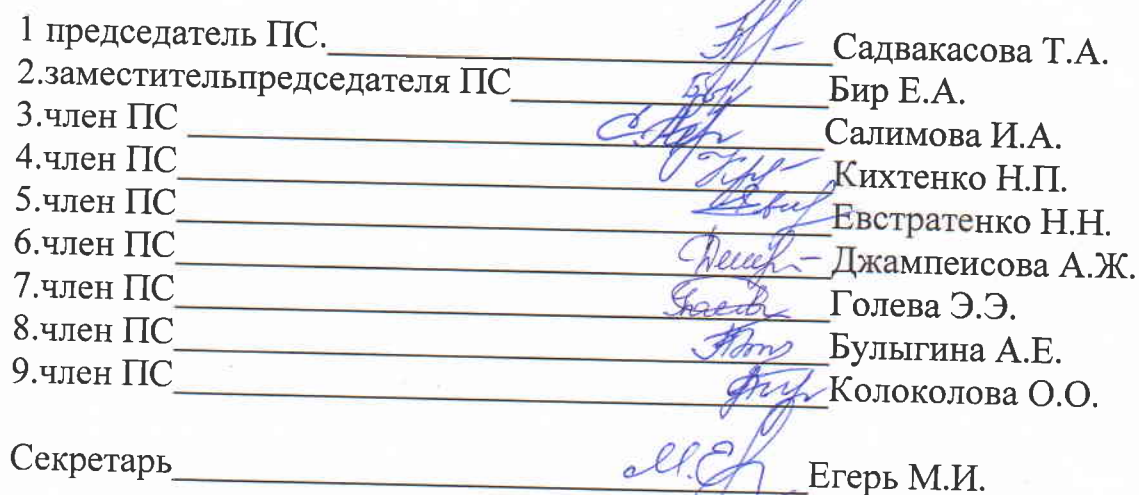 1 председатель ПС.____________________ Садвакасова Т.А.
2.заместительпредседателя ПС____________________Бир Е.А.
3.член ПС ____________________Салимова И.А.
4.член ПС____________________Кихтенко Н.П.
5.член ПС____________________Евстратенко Н.Н.
6.член ПС____________________Джампеисова А.Ж.
7.член ПС____________________Голева Э.Э.
8.член ПС____________________Булыгина А.Е.
9.член ПС____________________Колоколова О.О.
Секретарь____________________Егерь М.И.